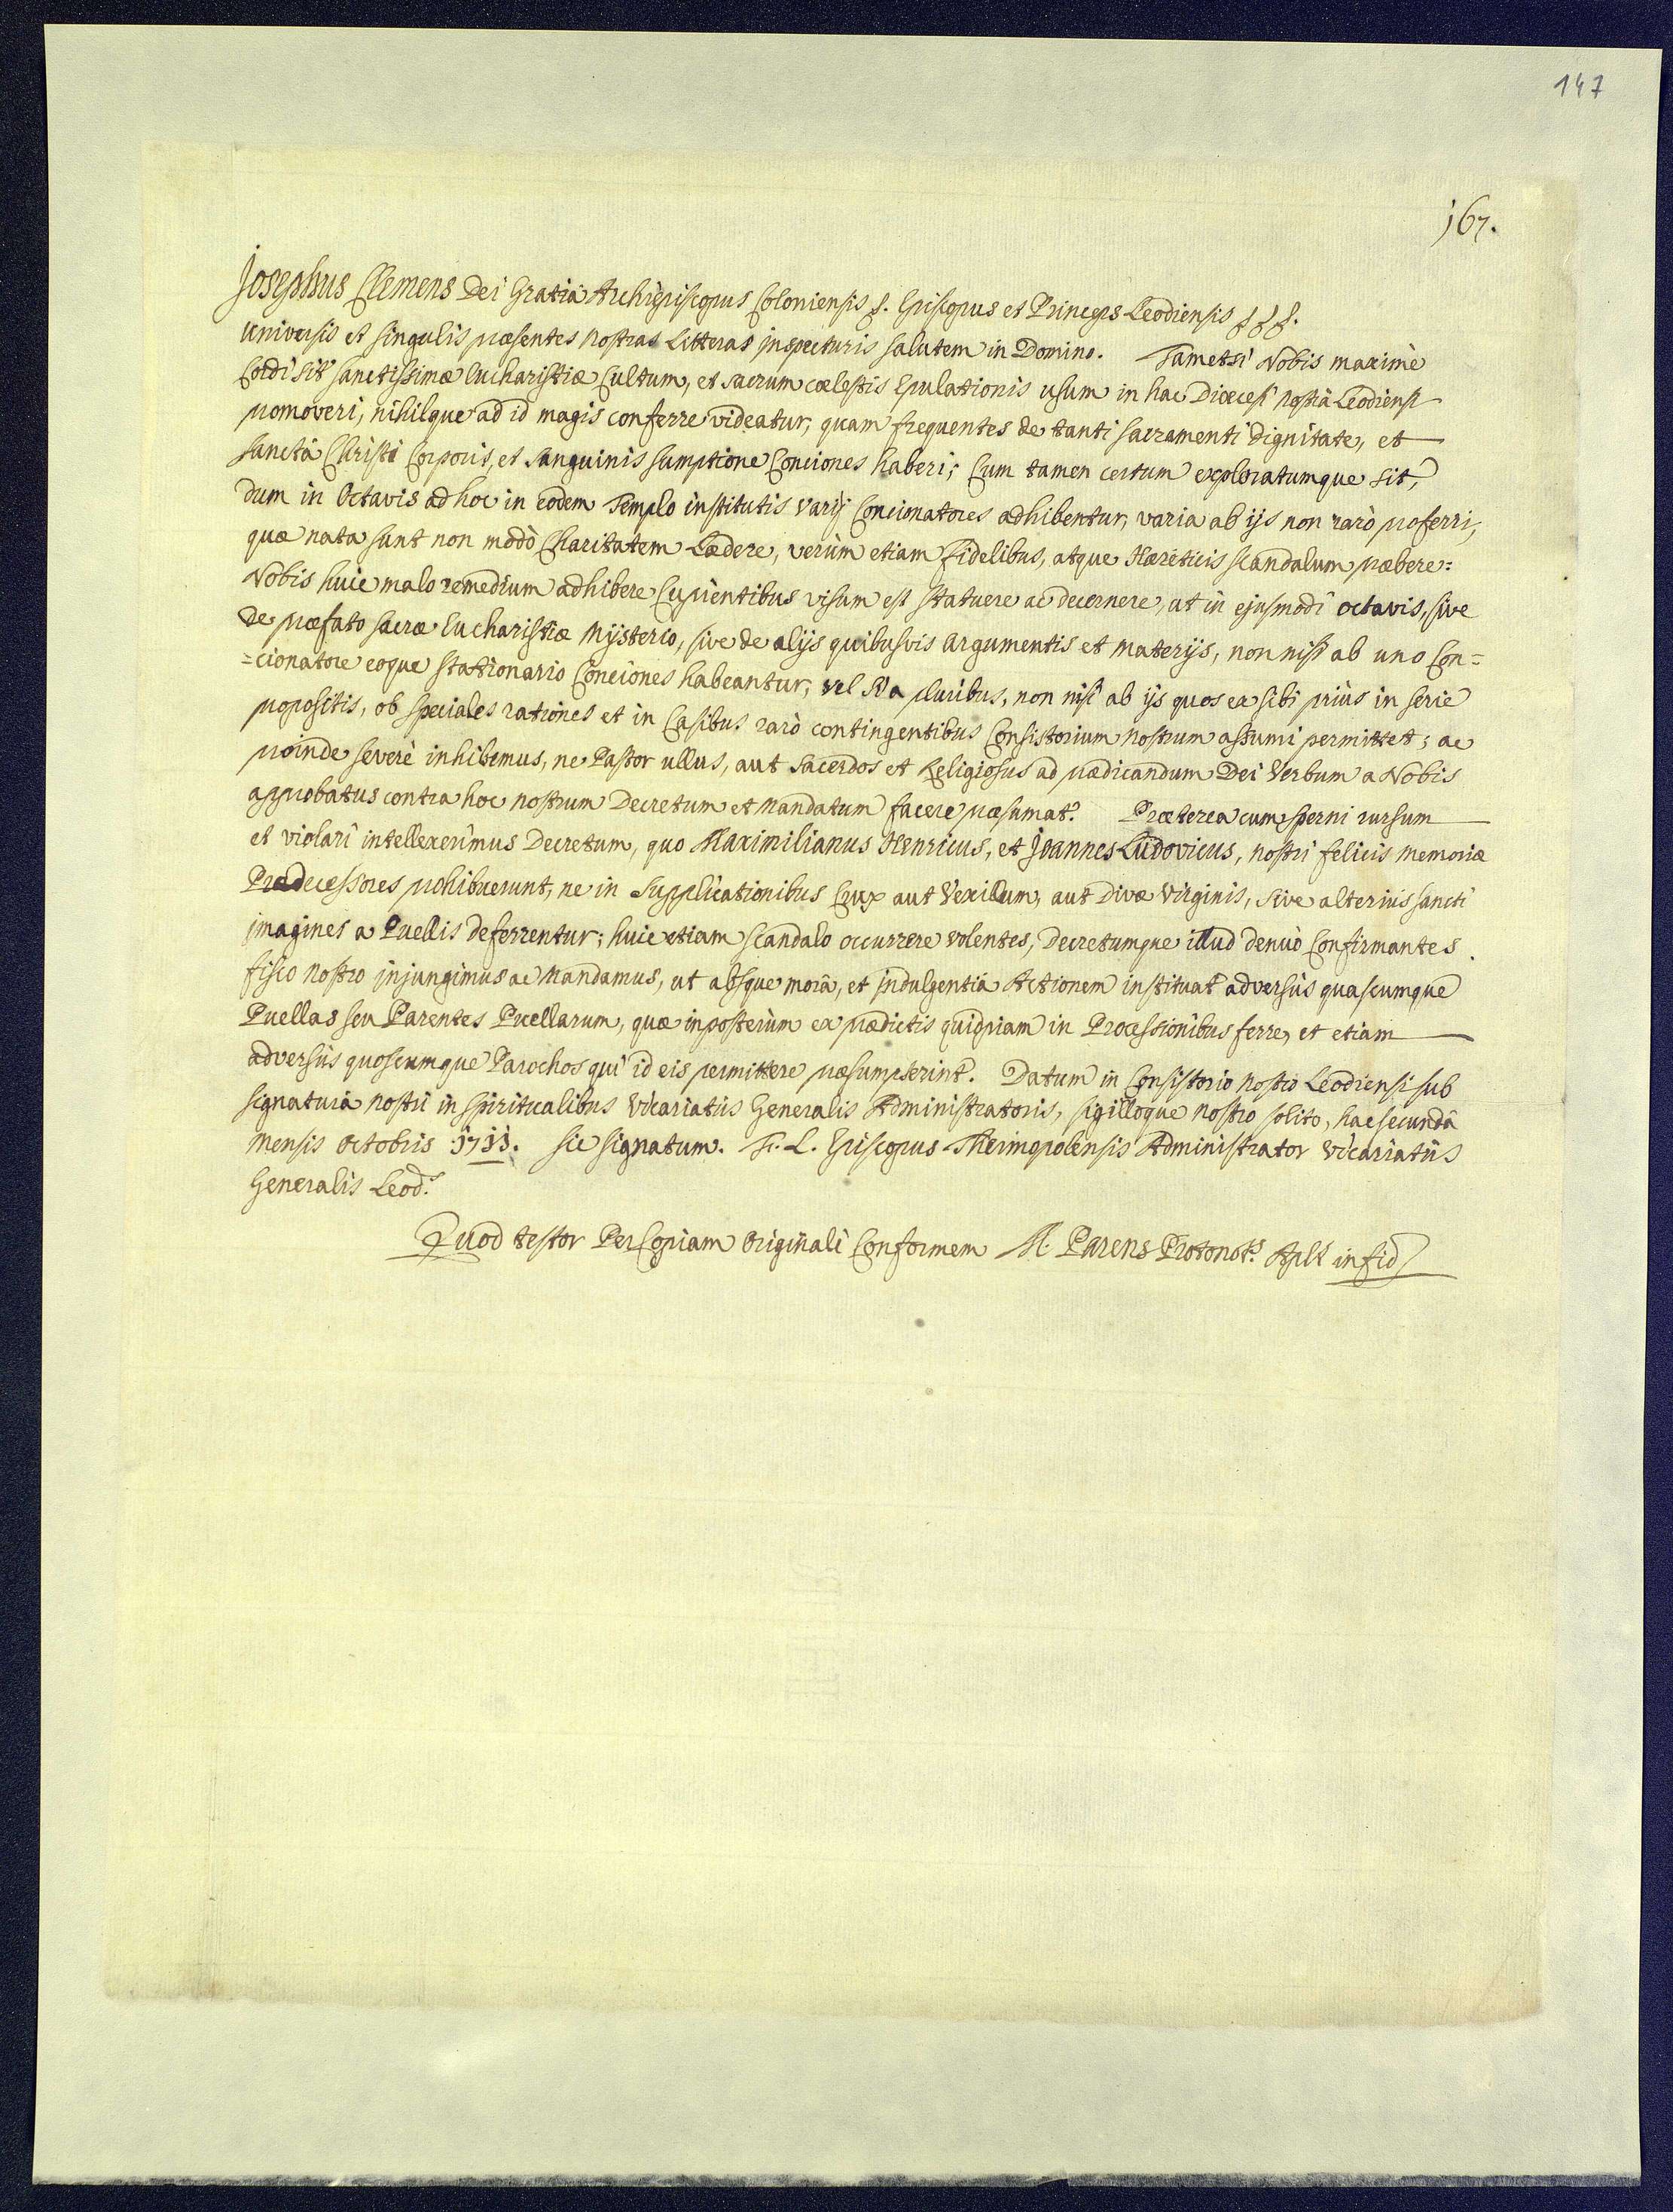 147
167.
Josephus Clemens Dei Gratiâ Archiepiscopus Coloniensis &. Episcopus et Princeps Leodiensis &&&.
Universis et singulis præsentes nostras Litteras inspecturis salutem in Domino. Tametsi Nobis maximè
Cordi sit sanctissimæ Eucharistiæ Cultum, et sacrum cœlestis Epulationis usum in hac Diœcesi nostrâ Leodiensi
promoveri, nihilque ad id magis conferre videatur, quam frequentes de tanti sacramenti dignitate, et
sanctâ Christi Corporis, et Sanguinis sumptione Conciones haberi; Cum tamen certum exploratumque sit,
dum in Octavis ad hoc in eodem Templo institutis varij Concionatores adhibentur, varia ab ijs non rarò proferri,
quæ nata sunt non modò Charitatem Lædere, verùm etiam Fidelibus, atque Hæreticis scandalum præbere:
Nobis huic malo remedium adhibere Cupientibus visum est statuere ac decernere, ut in ejusmodi octavis, sive
de præfato sacræ Eucharistiæ Mijsterio, sive de alijs quibusvis argumentis et materijs, non nisi ab uno Con=
=cionatore eoque stationario Conciones habeantur, vel si a pluribus, non nisi ab ijs quos ex sibi priùs in serie
propositis, ob speciales rationes et in Casibus rarò contingentibus Consistorium nostrum assumi permittet; ac
proinde severè inhibemus, ne Pastor ullus, aut Sacerdos et Religiosus ad prædicandum Dei Verbum a Nobis
approbatus contra hoc nostrum Decretum et Mandatum facere præsumat. Præterea cum sperni rursum
et violari intellexerimus Decretum, quo Maximilianus Henricus, et Joannes Ludovicus, nostri felicis memoriæ
Prædecessores prohibuerunt, ne in Supplicationibus Crux aut Vexillum, aut Divæ Virginis, sive alterius sancti
imagines a Puellis deferrentur; huic etiam scandalo occurrere volentes, Decretumque illud denuò Confirmantes
fisco nostro injungimus ac Mandamus, ut absque morâ, et indulgentiâ Actionem instituat adversùs quascumque
Puellas seu Parentes Puellarum, quæ inposterùm ex prædictis quidpiam in Processionibus ferre, et etiam
adversùs quoscumque Parochos qui id eis permittere præsumpserint. Datum in Consistorio nostro Leodiensi sub
signaturâ nostri in spiritualibus Vicariatûs Generalis Administratoris, sigilloque nostro solito, hac secundâ
Mensis Octobris 1711. sic signatum. F. L. Episcopus Thermopolensis Administrator Vicariatûs
Generalis Leod.s
Quod testor Per Copiam Originali Conformem M. Parens Protonot.s Aplt in fid